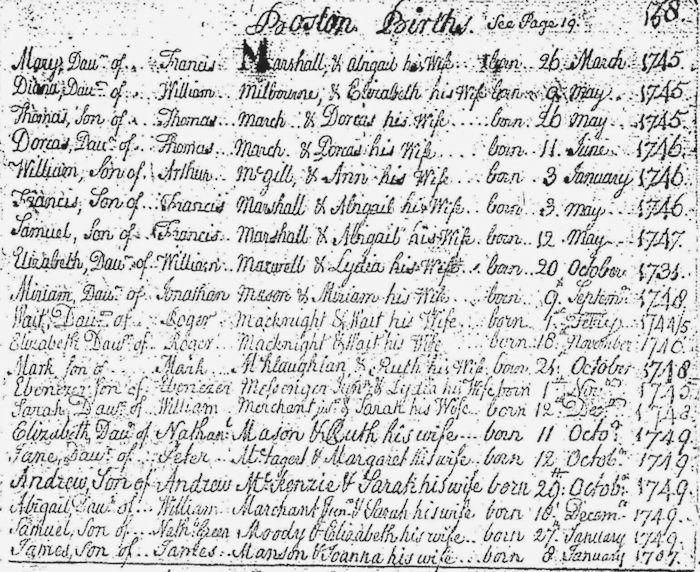 Boston Births. See Page 19. 168.
Mary, Dau.r of.. Francis Marshall, & Abigail his Wife born 26 March 1745.
Diana, Dau.r of.. William Milbourne, & Elizabeth his Wife born 9 May 1745.
Thomas, Son of.. Thomas March & Dorcas his Wife born 26 May 1745.
Dorcas, Dau.r of. Thomas.. March & Dorcas his Wife born.. 11 June 1746.
William, Son of.. Arthur.. McGill, & Ann his Wife born.. 3 January 1746.
Francis, Son of.. Francis Marshall & Abigail his Wife born.. 3 May 1746.
Samuel, Son of. Francis. Marshall & Abigail his Wife born. 12 May 1747.
Elizabeth, Dau.r of. William. Maxwell & Lydia his Wife born. 20 October
Miriam, Dau.r of.. Jonathan Mason & Miriam his Wife born.. 9th Septem.r 1748.
Wait, Dau.r of. Roger Macknight & Wait his Wife born 1744/5
Elizabeth Dau.r of. Roger. Macknight & Wait his Wife born 18 November 1746.
Mark Son of. Mark McKlaughlan & Ruth his Wife, born 21 October 1748.
Ebenezer Son of Ebenezer Messenger Jun.r & Lydia his Wife born 1st Nov.r
Sarah, Dau.r of William Merchant ju.r & Sarah his Wife born 12th Dec.r
Elizabeth, Dau.r of Nathan.l Mason & Ruth his wife born 11 Octo.r 1749.
Jane, Dau.r of. Peter & Margaret his wife born 12 Octob.r 1749.
Andrew, Son of Andrew McKenzie & Sarah his wife born 29th Octob.r 1749.
Abigail, Dau.r of. William Marchant Jun.r & Sarah his wife born 18 Decem.r 1749..
Samuel, Son of Nath.l Green Moody & Elizabeth his wife.. born 27th January 1749.
James, Son of James Manson & Joanna his wife born 8 January